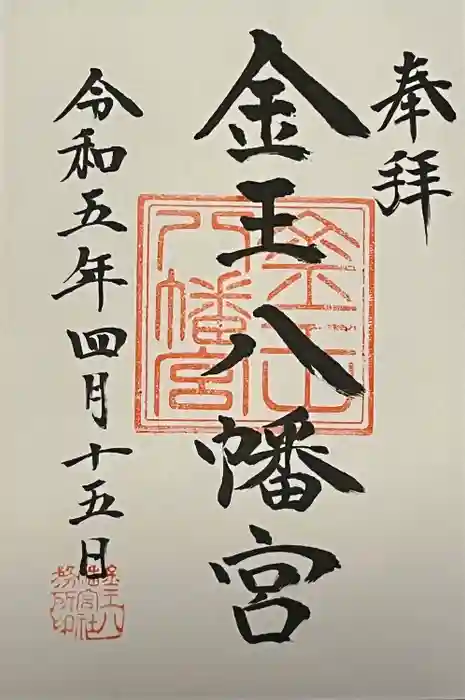 奉拝
金王八幡宮
令和五年四月十五日
金王
八幡宮
金王八
幡宮社
務所印